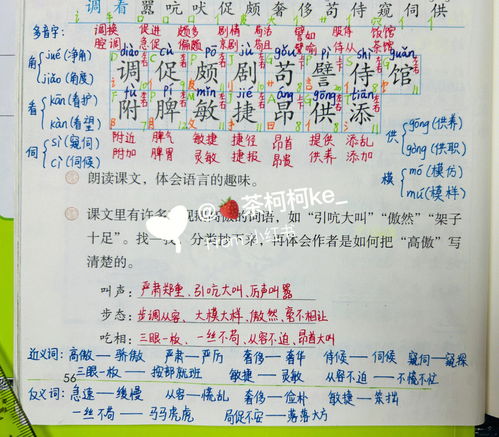 调 看 嚣 吭 吠 促 颇 奢 侈 苟 侍 窥 伺 供
多音字：
调换 促进 颇多 剧情 苟活 譬如 服侍 饭馆
腔调 急促 偏颇 京剧 苟且 譬喻 侍从 茶馆
diào cù pō jù gǒu pì shì guǎn
调 促 颇 剧 苟 譬 侍 馆
fù pí mǐn jié áng gōng tiān
附 脾 敏 捷 昂 供 添
附近 脾气 敏捷 捷径 昂首 提供 添乱
附加 脾胃 灵敏 捷报 昂贵 供养 添加
角 jué（净角）
jiǎo（角度）
看 kān（看护）
kàn（看望）
伺 sì（窥伺）
cì（伺候）
供 gōng（供养）
gòng（供职）
模 mó（模仿）
mú（模样）
朗读课文，体会语言的趣味。
@🍓茶柯柯ke_
小红书
课文里有许多表现鹅高傲的词语，如“引吭大叫”“傲然”“架子
十足”。找一找，分类抄下来，再体会作者是如何把“高傲”写
清楚的。
叫声：严肃郑重、引吭大叫、厉声叫嚣
步态：步调从容、大模大样、傲然、毫不相让
吃相：三眼一板、一丝不苟、从容不迫、昂首大叫
近义词：高傲—骄傲 严肃—严厉 奢侈—奢华 侍候—伺候 窥伺—窥探
三眼一板—按部就班 敏捷—灵敏 从容不迫—不慌不忙
56
反义词：急速—缓慢 从容—慌乱 奢侈—俭朴 敏捷—笨拙
一丝不苟—马马虎虎 局促不安—落落大方